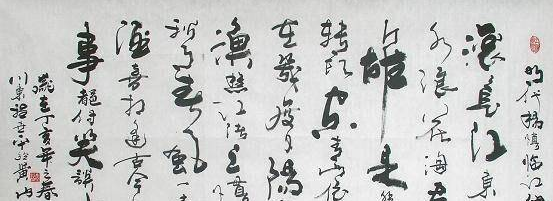 明代楊慎臨江仙
滚长江東
水浪花淘
英雄是
转頭空青山依
在幾度陽
漁樵江渚上慣
秋月春風壺一
酒喜相逢古今
事都付笑談
歲在丁亥年之春
川東